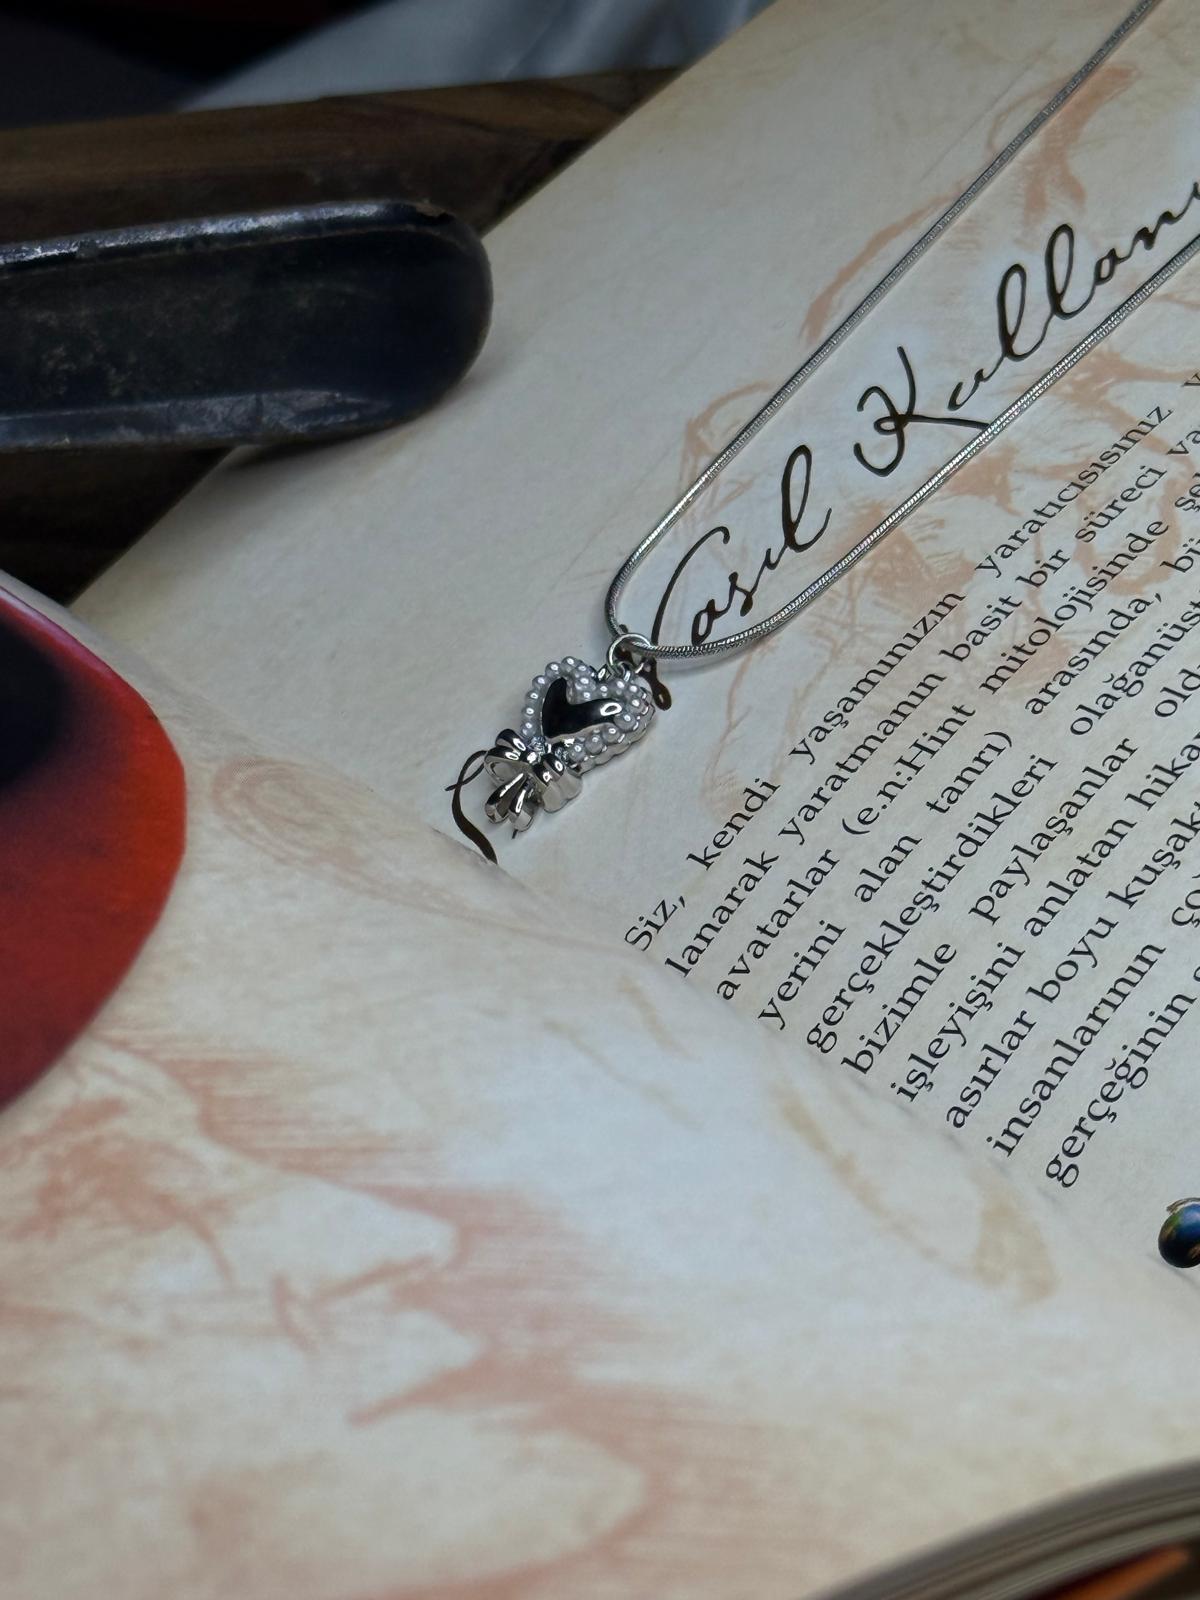 Nasıl Kullanı
Siz, kendi yaşamınızın yaratıcısısınız
lanarak yaratmanın basit bir süreci va
avatarlar (e.n:Hint mitolojisinde şek
yerini alan tanrı) arasında, bü
gerçekleştirdikleri olağanüst
bizimle paylaşanlar old
işleyişini anlatan hika
asırlar boyu kuşak
insanlarının ço
gerçeğinin